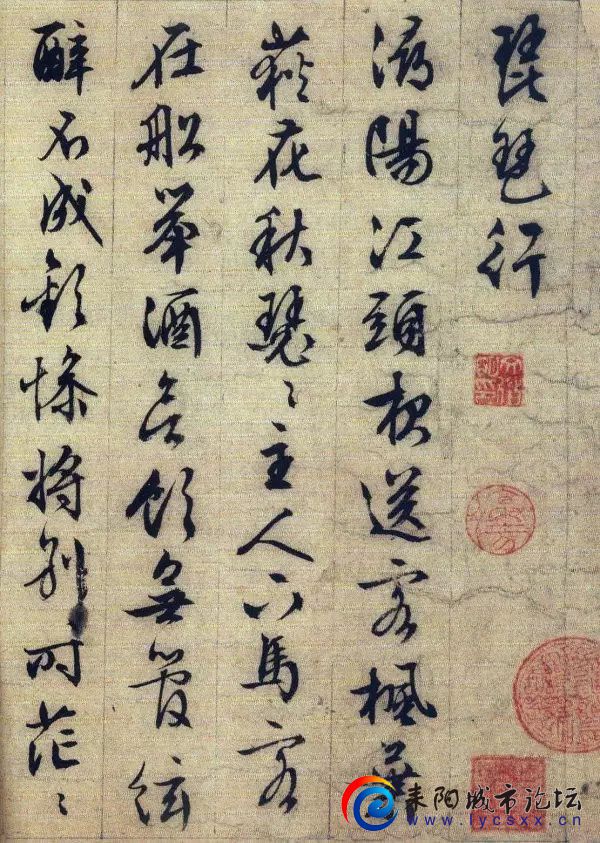 琵琶行
潯陽江頭夜送客楓葉
荻花秋瑟〻主人下馬客
在船舉酒欲飲無管絃
醉不成歡慘將別〻時茫〻
耒阳城市论坛
www.lycsxx.cn